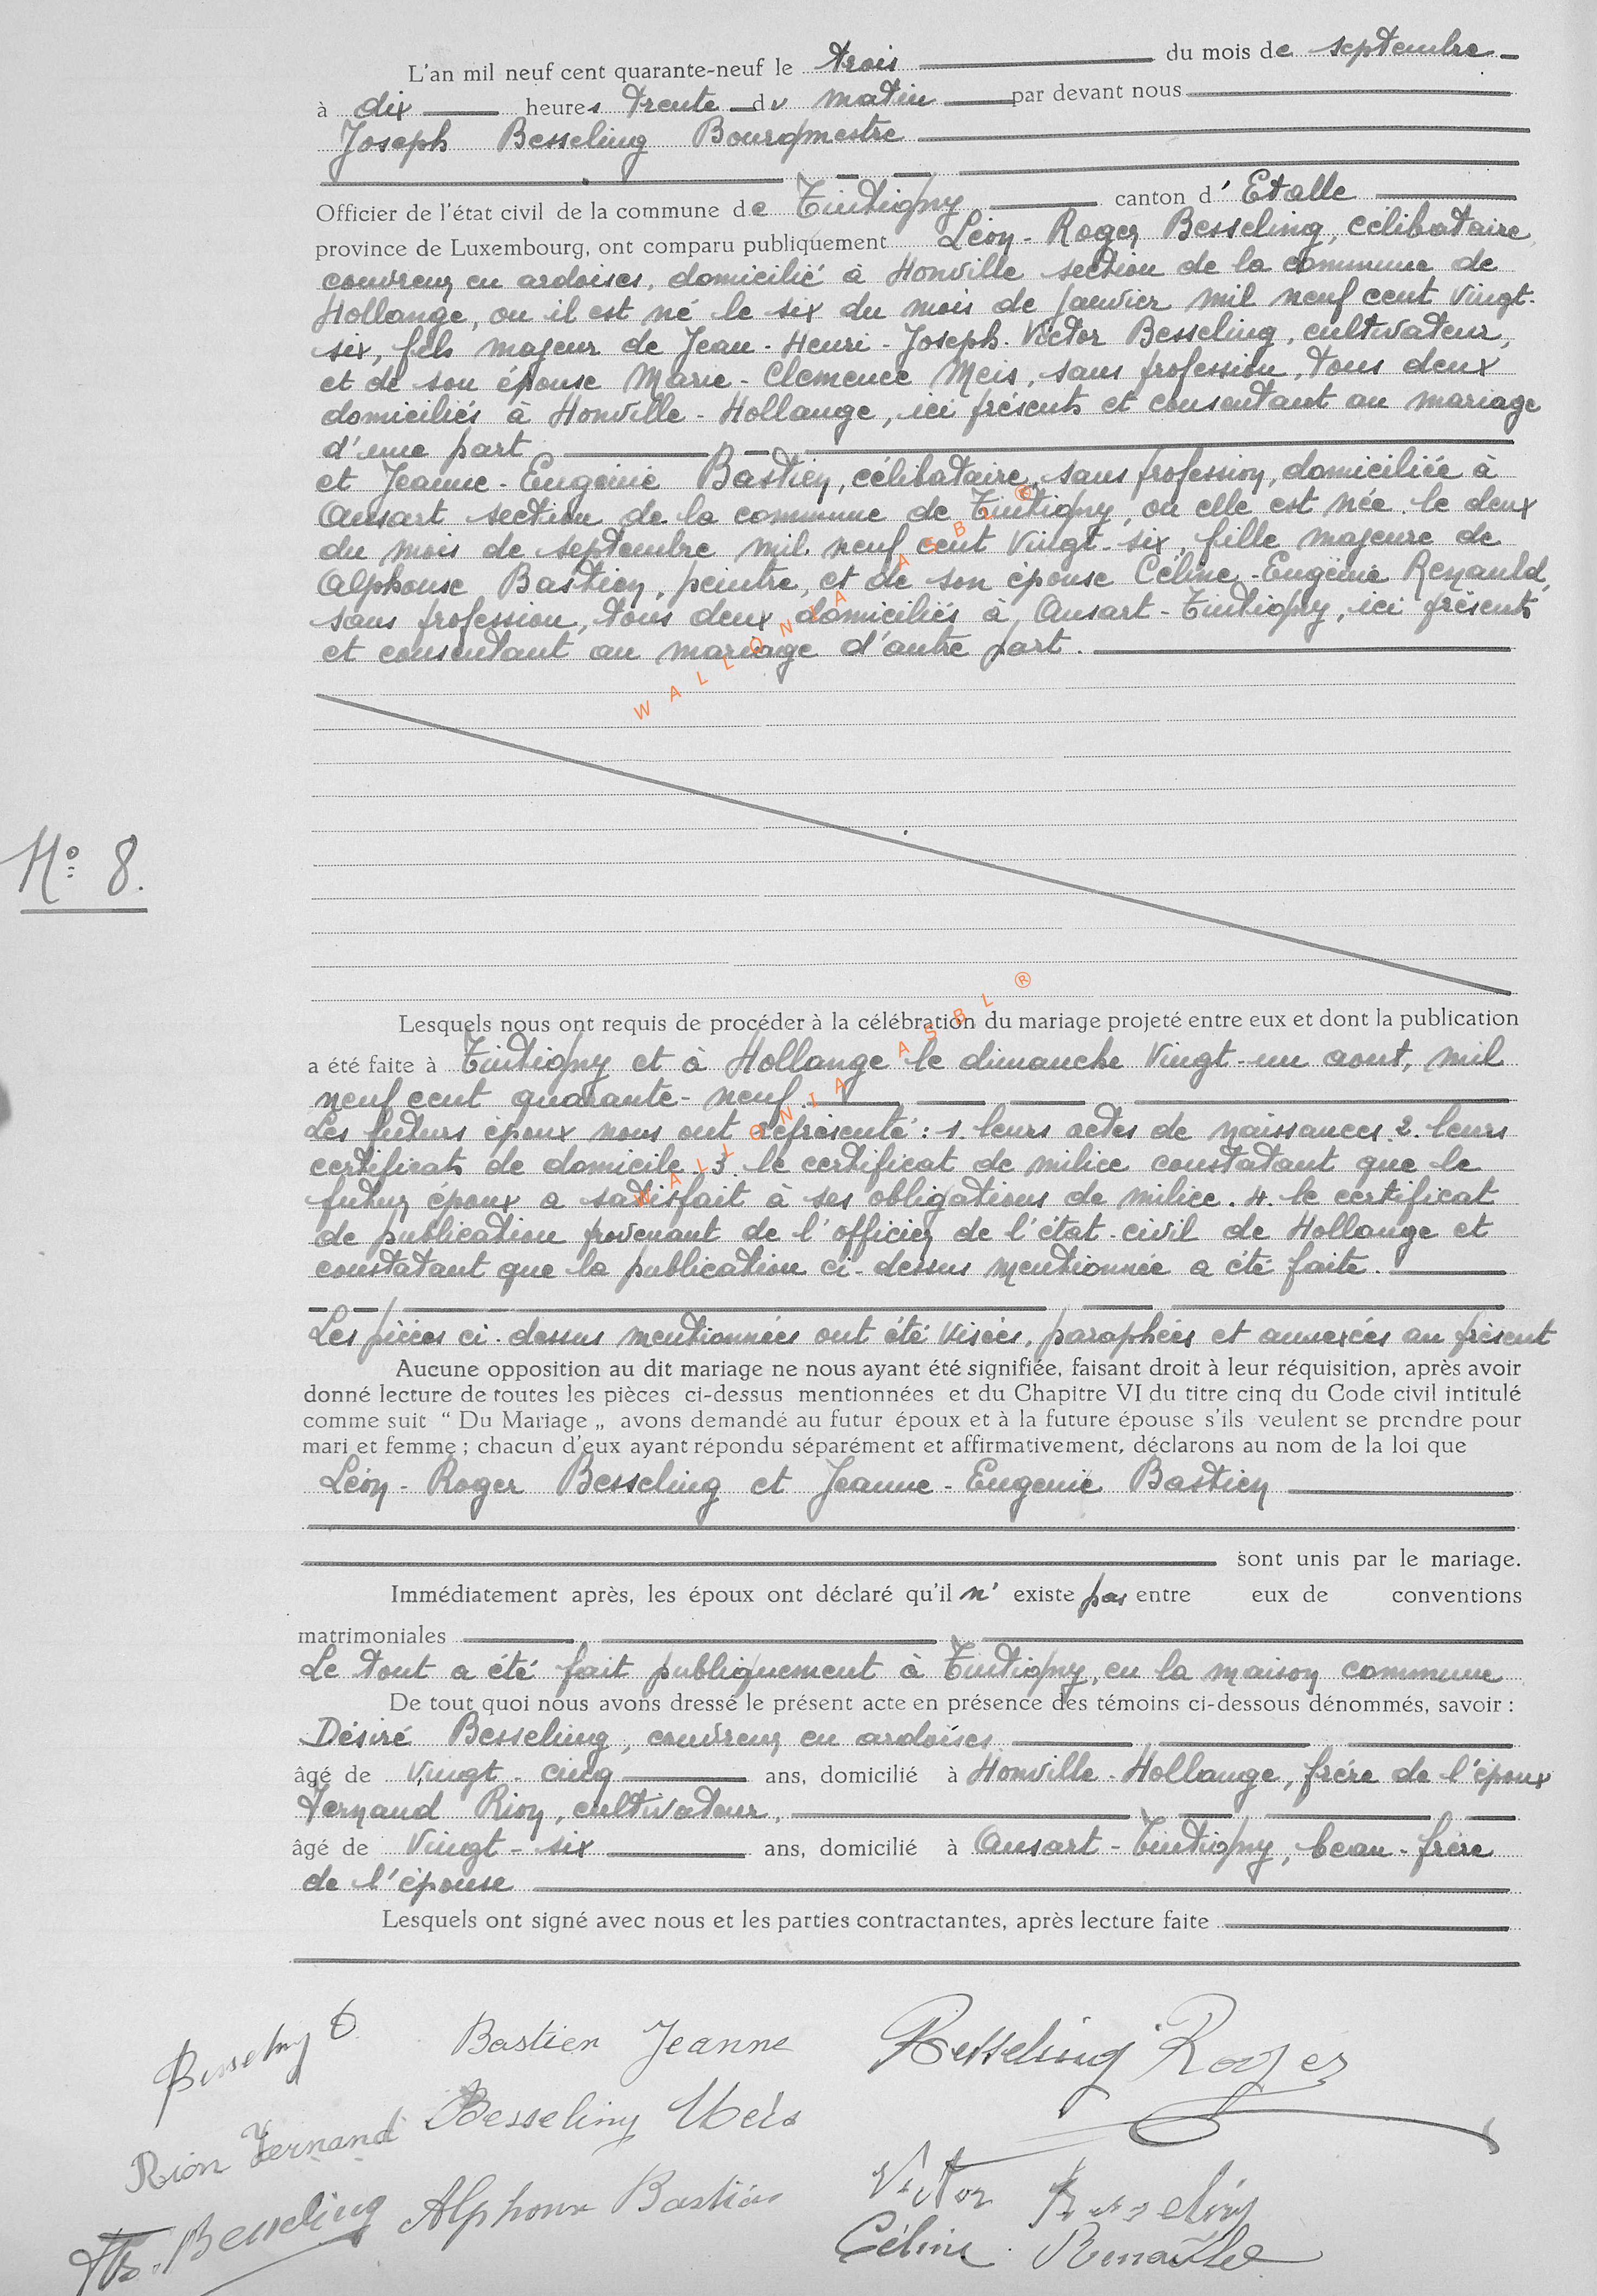 L'an mil neuf cent quarante-neuf le trois du mois de septembre
à dix heures trente du matin par devant nous
Joseph Besseling Bourgmestre
Officier de l'état civil de la commune de Tintigny canton d' Etalle
province de Luxembourg, ont comparu publiquement Léon - Roger Besseling, célibataire,
couvreur en ardoises, domicilié à Honville section de la commune de
Hollange, ou il est né le six du mois de janvier mil neuf cent vingt-
six, fils majeur de Jean - Henri - Joseph - Victor Besseling, cultivateur,
et de son épouse Marie - Clemence Meis, sans profession, tous deux
domiciliés à Honville - Hollange, ici présents et consentant au mariage
d'une part
et Jeanne - Eugénie Bastien, célibataire, sans profession, domiciliée à
Ansart section de la commune de Tintigny, ou elle est née le deux
du mois de septembre mil neuf cent vingt-six, fille majeure de
Alphonse Bastien, peintre, et de son épouse Céline - Eugénie Renauld,
sans profession, tous deux domiciliés à Ansart - Tintigny, ici présents
et consentant au mariage d'autre part.
WALLONIA ASBL ®
N° 8.
Lesquels nous ont requis de procéder à la célébration du mariage projeté entre eux et dont la publication
a été faite à Tintigny et à Hollange le dimanche vingt-un aout, mil
neuf cent quarante-neuf
WALLONIA ASBL ®
Les futurs époux nous ont représenté : 1. leurs actes de naissances 2. leurs
certificats de domicile. 3 le certificat de milice constatant que le
futur époux a satisfait à ses obligations de milice. 4. le certificat
de publication provenant de l'officier de l'état-civil de Hollange et
constatant que la publication ci-dessus mentionnée a été faite.
Les pièces ci-dessus mentionnées ont été visées, paraphées et annexées au présent
Aucune opposition au dit mariage ne nous ayant été signifiée, faisant droit à leur réquisition, après avoir
donné lecture de toutes les pièces ci-dessus mentionnées et du Chapitre VI du titre cinq du Code civil intitulé
comme suit “ Du Mariage „ avons demandé au futur époux et à la future épouse s'ils veulent se prendre pour
mari et femme ; chacun d'eux ayant répondu séparément et affirmativement, déclarons au nom de la loi que
Léon - Roger Besseling et Jeanne - Eugenie Bastien
sont unis par le mariage.
Immédiatement après, les époux ont déclaré qu'il n' existe pas entre eux de conventions
matrimoniales
Le tout a été fait publiquement à Tintigny, en la maison commune
De tout quoi nous avons dressé le présent acte en présence des témoins ci-dessous dénommés, savoir :
Désiré Besseling, couvreur en ardoises
âgé de vingt - cinq ans, domicilié à Honville - Hollange, frère de l'époux
Fernand Rion, cultivateur,
âgé de vingt - six ans, domicilié à Ansart - Tintigny, beau-frère
de l'épouse
Lesquels ont signé avec nous et les parties contractantes, après lecture faite
Besseling D Bastien Jeanne Besseling Roger
Rion Fernand Besseling Meis
Victor Besseling
Besseling Alphonse Bastien
Céline Renauld